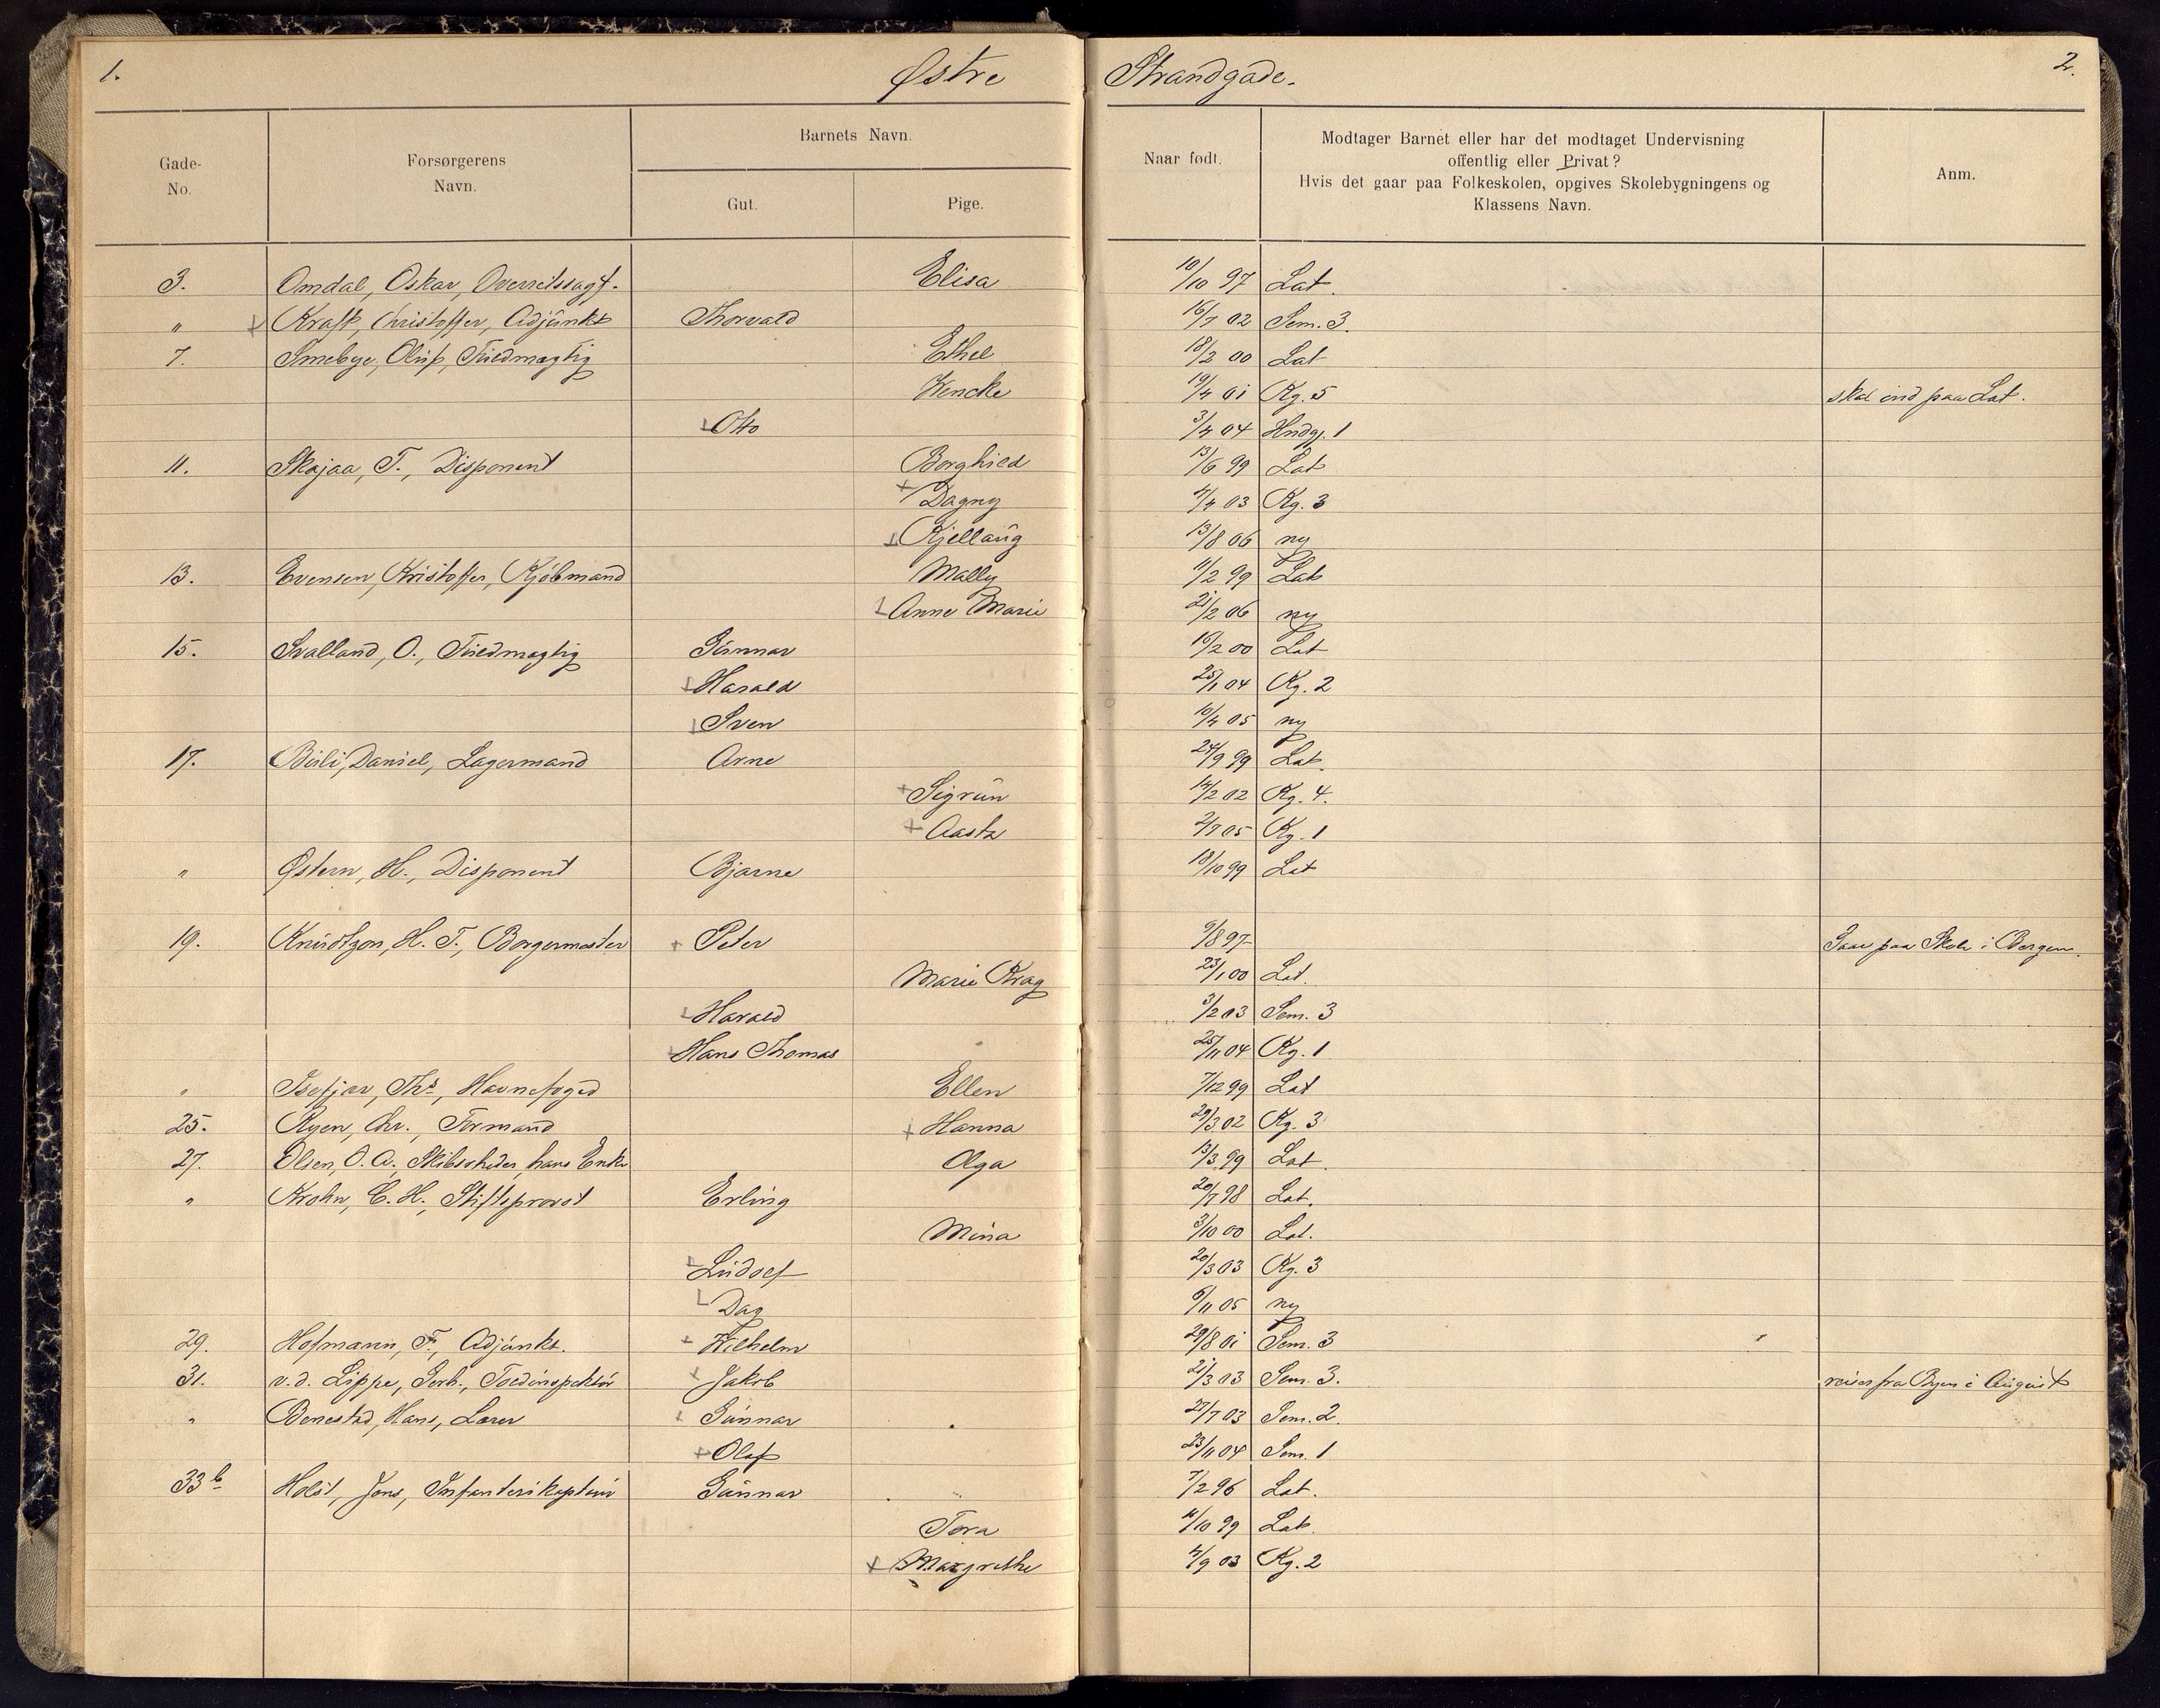 1. Østre Strandgade. 2.
Gade-No. Forsørgerens Navn. Barnets Navn. Gut. Pige. Naar født. Modtager Barnet eller har det modtaget Undervisning offentlig eller Privat? Hvis det gaar paa Folkeskolen, opgives Skolebygningens og Klassens Navn. Anm.
3. Omdal, Oskar, Overretssagf. Elisa 10/10 97 Lat.
" Kraft, Christoffer, Adjunkt Thorvald 16/7 02 Sem. 3.
7. Smebye, Oluf, Fuldmægtig Ethel 18/2 00 Lat
Wencke 19/4 01 Kg. 5 skal ind paa Lat.
Otto 3/4 04 Hndgj. 1
11. Skajaa, T., Disponent Borghild 13/6 99 Lat
Dagny 4/4 03 Kg. 3
Kjellaug 13/8 06 ny
13. Evensen, Kristoffer, Kjöbmand Mally 11/2 99 Lat
Anne Marie 21/2 06 ny
15. Svalland, O., Fuldmægtig Gunnar 16/2 00 Lat
Harald 25/1 04 Kg. 2
Sven 10/4 05 ny
17. Daniel, Lagermand Arne 24/9 99 Lat.
Sigrun 14/2 02 Kg. 4.
Aasta 2/7 05 Kg. 1
" Østern, H., Disponent Bjarne 18/10 99 Lat
19. Knudtzon, H. T., Borgermester Peter 9/8 97 Gaar paa Skole i Bergen.
Marie Krag 23/1 00 Lat.
Harald 3/2 03 Sem. 3
Hans Thomas 25/11 04 Kg. 1
" Isefjær, Ths, Havnefoged Ellen 7/12 99 Lat
25. Ryen, Chr., Formand Hanna 29/3 02 Kg. 3
27. Olsen, O. A., Skibsreder, hans Enke Olga 13/3 99 Lat.
" Krohn, C. H., Stiftsprovst Erling 20/7 98 Lat.
Mina 3/10 00 Lat.
Ludolf 20/3 03 Kg. 3
Dag 6/11 05 ny
29. Hofmann, F., Adjunkt. Wilhelm 29/8 01 Sem. 3
31. v. d. Lippe, Gerh., Toldinspektör Jakob 21/3 03 Sem. 3. reiser fra Byen i August
" Benestad, Hans, Lærer Gunnar 27/7 03 Sem. 2.
Olaf 23/11 04 Sem. 1
33b Holst, Jens, Infanterikaptein Gunnar 7/2 96 Lat.
Tora 11/10 99 Lat.
Margrethe 4/9 03 Kg. 2